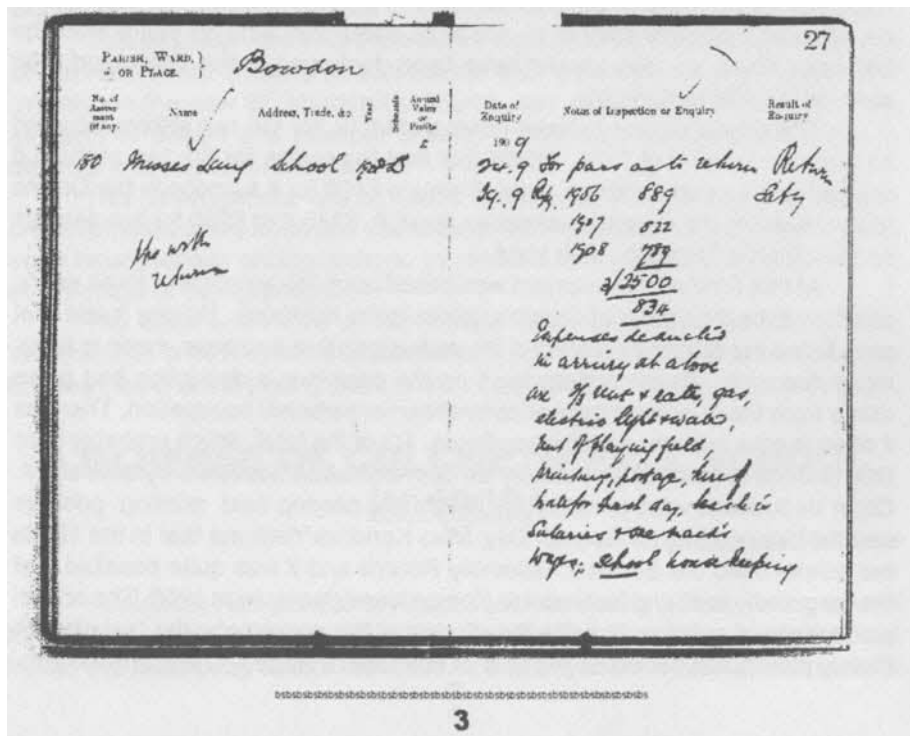 27
PARISH, WARD, OR PLACE. Bowdon
No. of Assessment (if any) Name Address, Trade, &c. Year Schedule Annual Value or Profits £ Date of Enquiry 1909 Notes of Inspection or Enquiry Result of Enquiry
150 Misses Lang School D Dec. 9 For pars as to return Retn
9 1906 889
1907 822
1908 789
3/2500
834
Expenses deducted
in arriving at above
are rent & rates, gas,
electric light & water,
rent of playing field,
printing, postage, hire of
for day, teachers
Salaries &
wages: school housekeeping
with
returns
3